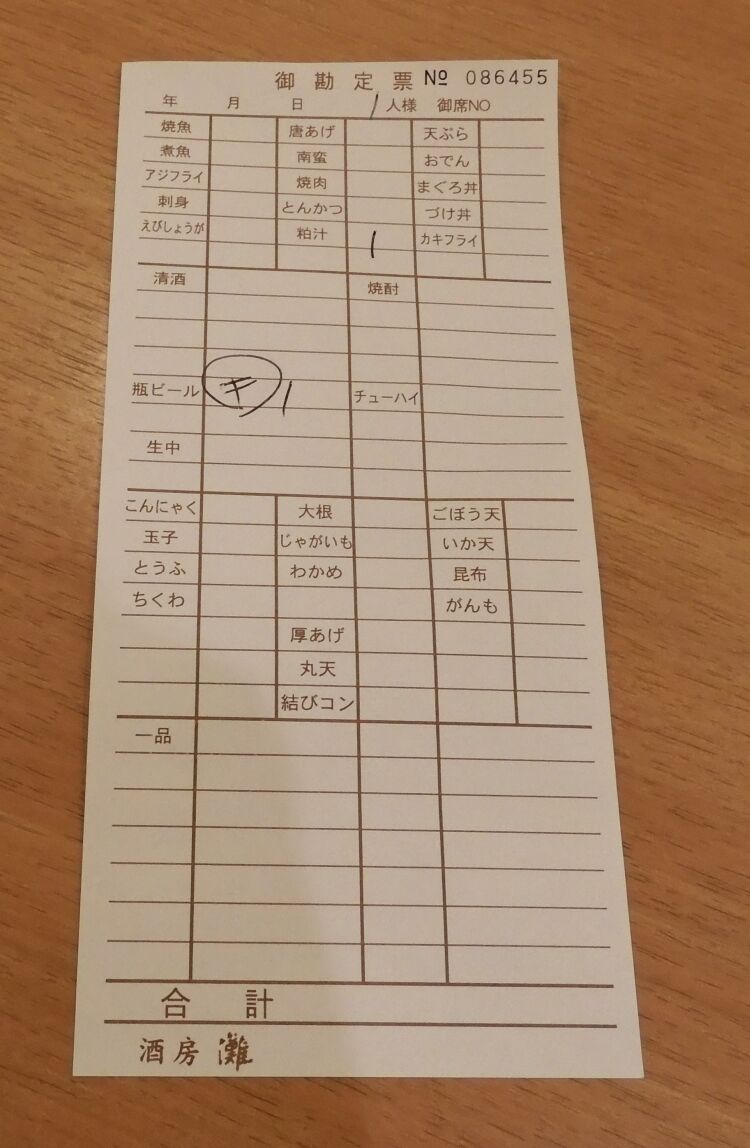 御勘定票 № 086455
年 月 日 1 人様 御席NO
焼魚 唐あげ 天ぷら
煮魚 南蛮 おでん
アジフライ 焼肉 まぐろ丼
刺身 とんかつ づけ丼
えびしょうが 粕汁 1 カキフライ
清酒 焼酎
瓶ビール キ 1 チューハイ
生中
こんにゃく 大根 ごぼう天
玉子 じゃがいも いか天
とうふ わかめ 昆布
ちくわ がんも
厚あげ
丸天
結びコン
一品
合計
酒房 灘